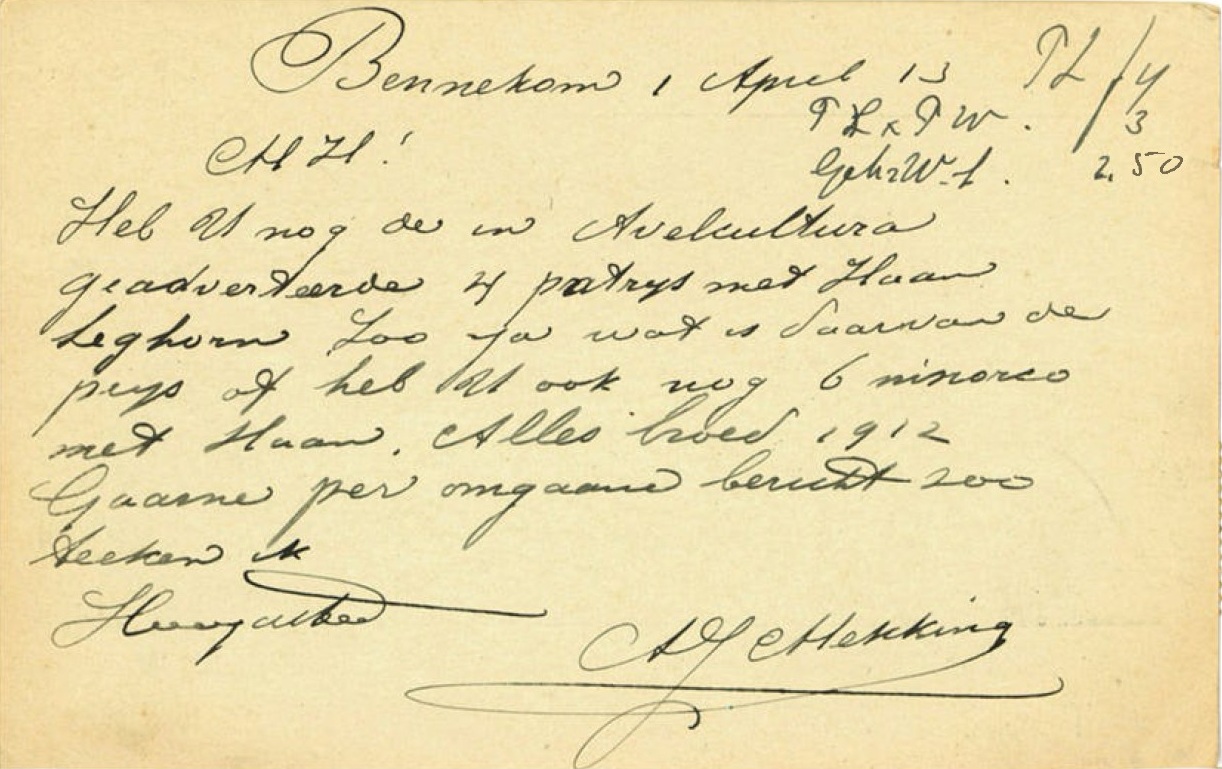 Bennekom 1 April 13
PL / 4
PL x PW. / 3
2,50
M H!
Heb U nog de in Avelcultura
geadverteerde 4 patrys met Haan
leghorn Zoo ja wat is daarvan de
prys of heb U ook nog 6 minorca
met Haan. Alles broed 1912
Gaarne per omgaand bericht zoo
teeken ik
Hoogachtend
AJ Mekking